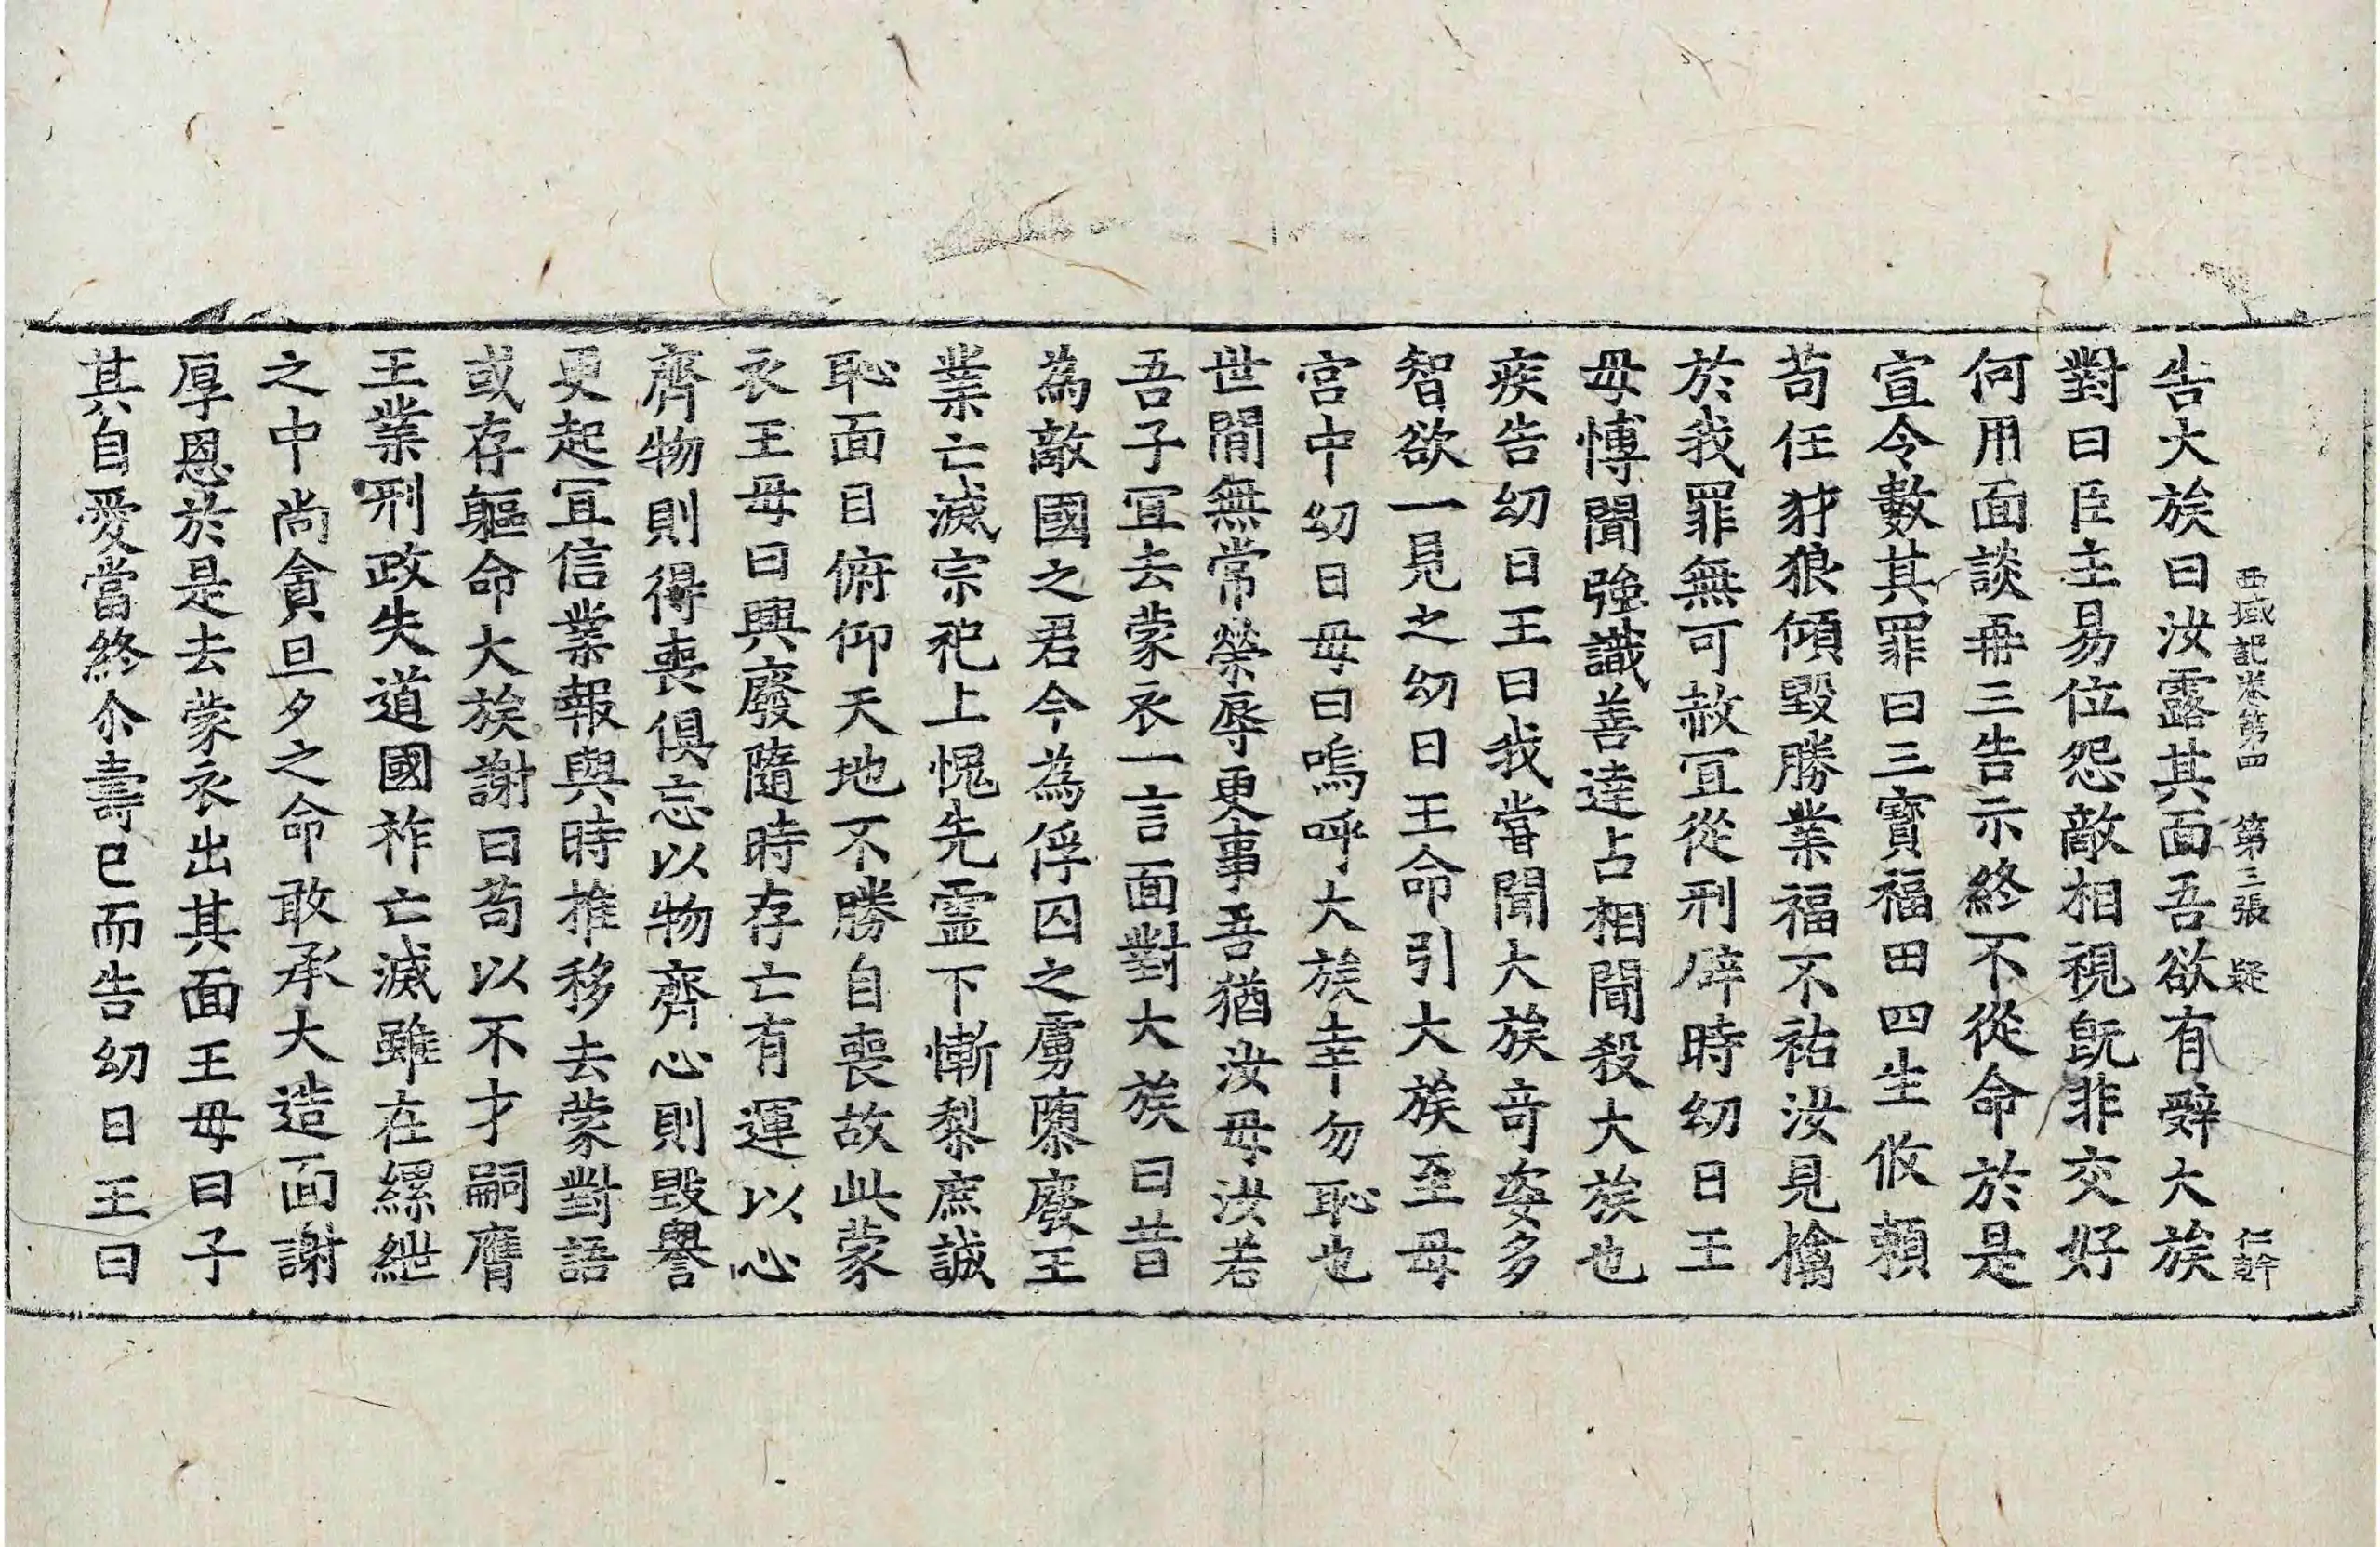 西域記卷第四　第三張　疑　仁幹
告大族曰汝露其面吾欲有辭大族
對曰臣主易位怨敵相視旣非交好
何用面談再三告示終不從命於是
宣令數其罪曰三寶福田四生攸賴
苟任犲狼傾毀勝業福不祐汝見擒
於我罪無可赦冝從刑辟時幼日王
母愽聞強識善達占相聞殺大族也
疾告幼日王曰我甞聞大族竒姿多
智欲一見之幼日王命引大族至母
宮中幼日母曰嗚呼大族幸勿恥也
世間無常榮辱更事吾猶汝母汝若
吾子冝去蒙衣一言面對大族曰昔
為敵國之君今為俘囚之虜隳廢王
業亡滅宗祀上愧先靈下慚黎庶誠
恥面目俯仰天地不勝自喪故此蒙
衣王母曰興廢隨時存亡有運以心
齊物則得喪俱忘以物齊心則毀譽
更起冝信業報與時推移去蒙對語
或存軀命大族謝曰苟以不才嗣膺
王業刑政失道國祚亡滅雖在縲紲
之中尚貪旦夕之命敢承大造面謝
厚恩於是去蒙衣出其面王母曰子
其自愛當終尒壽已而告幼日王曰